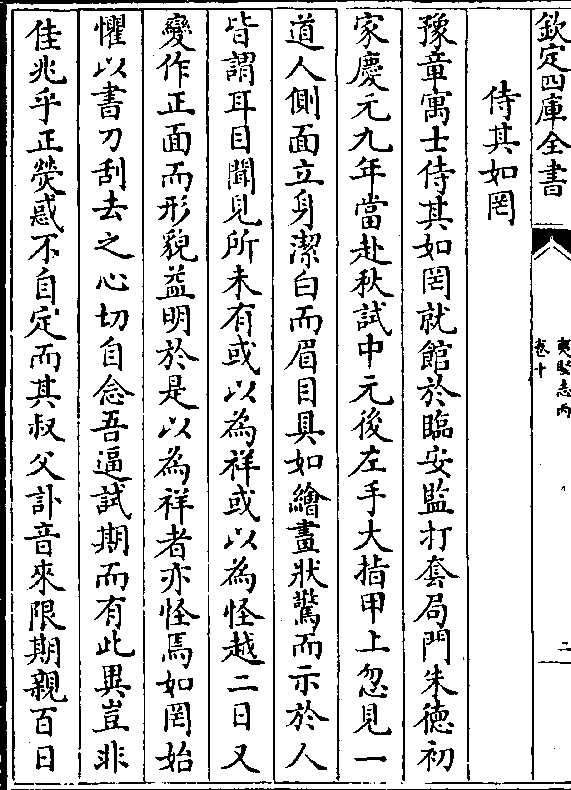 欽定四庫全書
夷堅志丙
卷十
二
侍其如罔
豫章寓士侍其如罔就館於臨安監打套局門朱德初
家慶元九年當赴秋試中元後左手大指甲上忽見一
道人側面立身潔白而眉目具如繪畫狀驚而示於人
皆謂耳目聞見所未有或以為祥或以為怪越二日又
變作正面而形貌益明於是以為祥者亦怪焉如罔始
懼以書刀刮去之心切自念吾逼試期而有此異豈非
佳兆乎正熒惑不自定而其叔父訃音來限期親百日